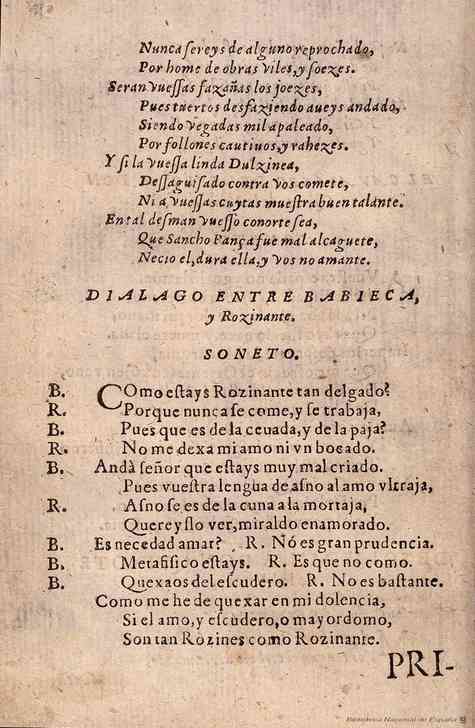 Nunca ſereys de alguno reprochado,
Por home de obras viles, y ſoezes.
Seran vueſſas fazañas los joezes,
Pues tuertos desfaziendo aueys andado,
Siendo vegadas mil apaleado,
Por follones cautiuos, y rahezes.
Y ſi la vueſſa linda Dulzinea,
Deſſaguiſado contra vos comete,
Ni a vueſſas cuytas mueſtra buen talante.
En tal deſman vueſſo conorte ſea,
Que Sancho Pança fue mal alcaguete,
Necio el, dura ella, y vos no amante.
DIALAGO ENTRE BABIECA,
y Rozinante.
SONETO.
B. COmo eſtays Rozinante tan delgado?
R. Porque nunca ſe come, y ſe trabaja,
B. Pues que es de la ceuada, y de la paja?
R. No me dexa mi amo ni vn bocado.
B. Andà ſeñor que eſtays muy mal criado.
Pues vueſtra lengua de aſno al amo vltraja,
R. Aſno ſe es de la cuna a la mortaja,
Quereyſlo ver, miraldo enamorado.
B. Es necedad amar? R. Nó es gran prudencia.
B. Metafiſico eſtays. R. Es que no como.
B. Quexaos del eſcudero. R. No es baſtante.
Como me he de quexar en mi dolencia,
Si el amo, y eſcudero, o mayordomo,
Son tan Rozines como Rozinante.
PRI-
Biblioteca Nacional de España